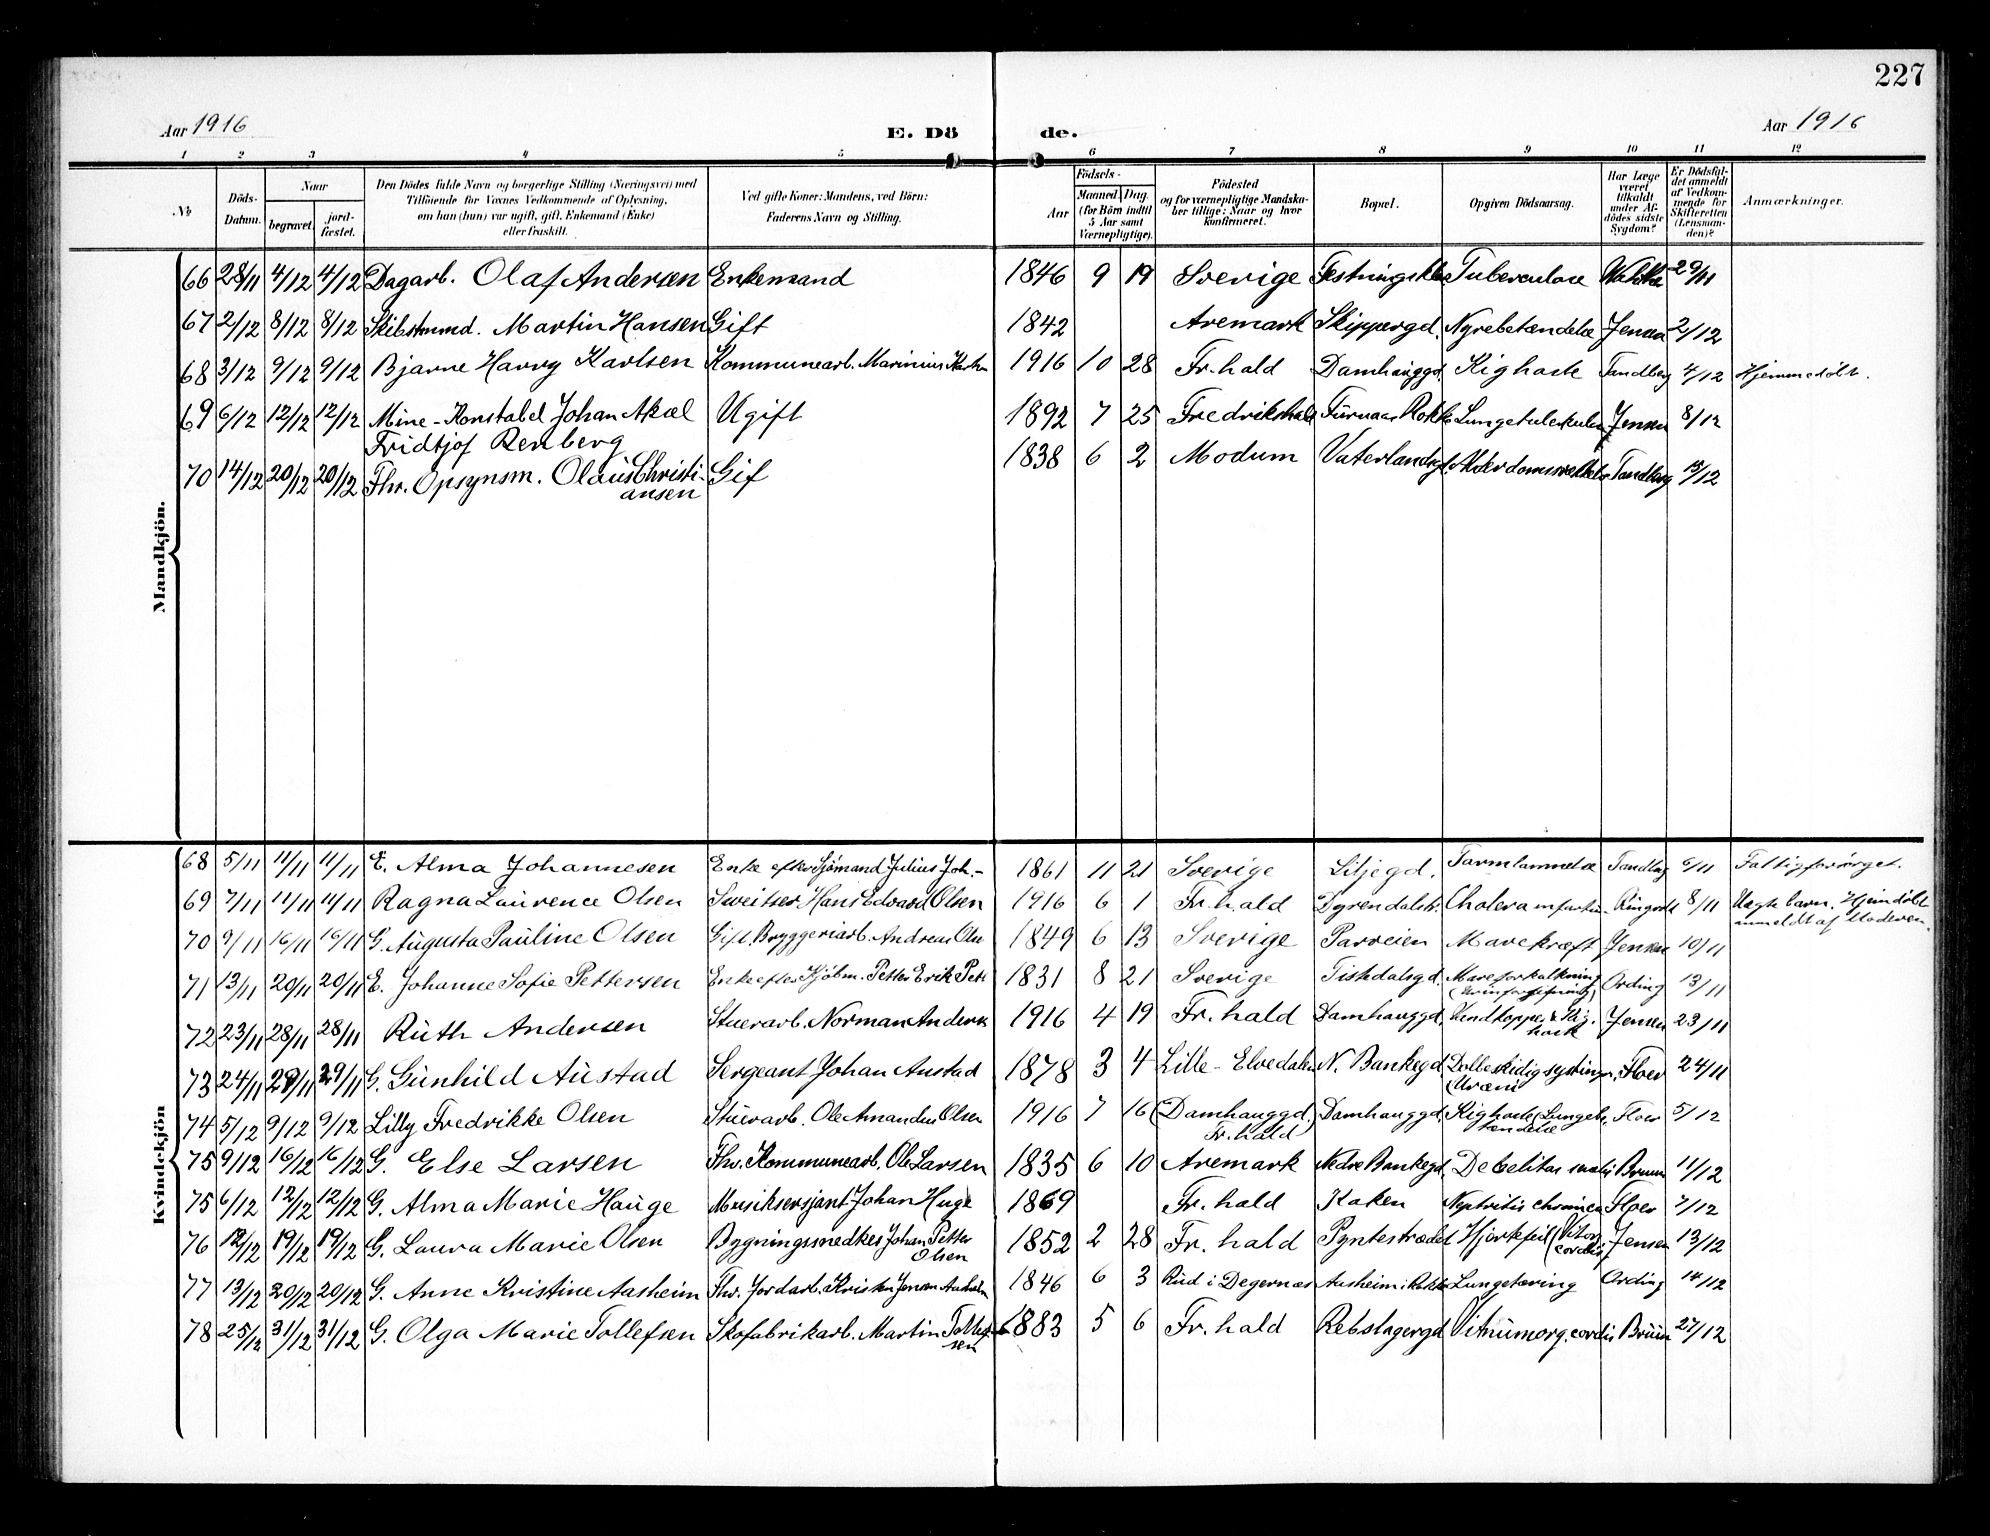 227
Aar 1916 E. Dö de. Aar 1916
1 2 3 4 5 6 7 8 9 10 11 12
№
Döds-Datum.
Naar
begravet.
jord-fæstet.
Den Dödes fulde Navn og borgerlige Stilling (Næringsvei) med
Tilföiende for Voxnes Vedkommende af Oplysning,
om han (hun) var ugift, gift, Enkemand (Enke)
eller fraskilt.
Ved gifte Koner: Mandens, ved Börn:
Faderens Navn og Stilling.
Födsels-
Aar
Maaned
Dag
(for Börn indtil
5 Aar samt
Værnepligtige).
Födested
og for værnepligtige Mandska-
ber tillige: Naar og hvor
konfirmeret.
Bopæl.
Opgiven Dödsaarsag.
Har Læge
været
tilkaldt
under Af-
dödes sidste
Sygdom?
Er Dödsfal-
det anmeldt
af Vedkom-
mende for
Skifteretten
(Lensman-
den)?
Anmærkninger.
Mandkjön.
66 28/11 4/12 4/12 Dagarb. Olaf Andersen Enkemand 1846 9 19 Sverige Tuberculose 29/11
67 2/12 8/12 8/12 Martin Hansen Gift 1842 Aremark Skippergd. Nyrebetændelse Jensen 2/12
68 3/12 9/12 9/12 Bjarne Harry Karlsen Kommunearb. Marinius 1916 10 28 Fr.hald Damhauggd. Kighoste Tandberg 4/12 Hjemmedöbt.
69 6/12 12/12 12/12 Mine-Konstabel Johan Aksel Ugift 1892 7 25 Fredrikshald Rokke Jensen 8/12
Fridtjof Renberg
70 14/12 20/12 20/12 Fhv. Opsynsm. Olaus Christi- Gif 1838 6 2 Modum Tandberg 15/12
ansen
Kvindekjön
68 5/11 11/11 11/11 E. Alma Johannesen Enke efter Sjømand Julius Joh.- 1861 11 21 Sverige Liljegd. Tandberg 6/11 Fattigforsørget.
69 7/11 11/11 11/11 Ragna Laurence Olsen Sweitser Hans Edvard Olsen 1916 6 1 Fr.hald Dyrendalsb. Cholera 8/11 Uegte barn. Hjemdöbt
anmeldt af Moderen.
70 9/11 16/11 16/11 G. Augusta Pauline Olsen Gift Bryggeriarb. Andreas Olsen 1849 6 13 Sverige Mavekræft Jensen 10/11
71 13/11 20/11 20/11 E. Johanne Sofie Pettersen Enke efter Kjøbm. Petter Erik Pett 1831 8 21 Sverige Tistedalsgd. Ording 13/11
72 23/11 28/11 28/11 Ruth Andersen Stuerarb. Norman Anders 1916 4 19 Fr.hald Damhauggd. Vandkopper & Kig- Jensen 23/11
hoste
73 24/11 29/11 29/11 G. Gunhild Austad Sergeant Johan Austad 1878 3 4 Lille-Elvedalen N. Bankegd Floer 24/11
(Uræmi
74 5/12 9/12 9/12 Lilly Fredrikke Olsen Stuerarb. Ole Amandus Olsen 1916 7 16 (Damhauggd. Damhauggd. Kighoste (Lungebe- Floer 5/12
Fr.hald) tændelse
75 9/12 16/12 16/12 G. Else Larsen Fhv. Kommunearb. Ole Larsen 1835 6 10 Aremark Nedre Bankegd. Debelitas senilis Bruun 11/12
75 6/12 12/12 12/12 G. Alma Marie Hauge Musiksersjant Johan Huge 1869 Fr. hald Kaken Floer 7/12
76 12/12 19/12 19/12 G. Laura Marie Olsen Bygningssnedker Johan Petter 1852 2 28 Fr. hald Pyntestrædet Hjertefeil (Vitor Jensen 13/12
Olsen cordis)
77 13/12 20/12 20/12 G. Anne Kristine Aasheim Fhv. Jordarb. Jensen Aasheim 1846 6 3 Rud i Degernes Aasheim i Rokke Lungetæring Ording 14/12
78 25/12 31/12 31/12 G. Olga Marie Tollefsen Skofabrikarb. Martin Tollef- 1883 5 6 Fr.hald Rebslagergd Vitiumorg. cordis Bruun 27/12
sen